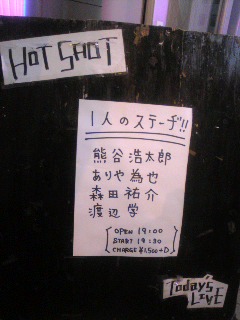 HOT SHOT
1人のステージ!!
熊谷 浩太郎
ありや 為也
森田 祐介
渡辺 学
OPEN 19:00
START 19:30
CHARGE ¥1,500+D
Today's
LIVE